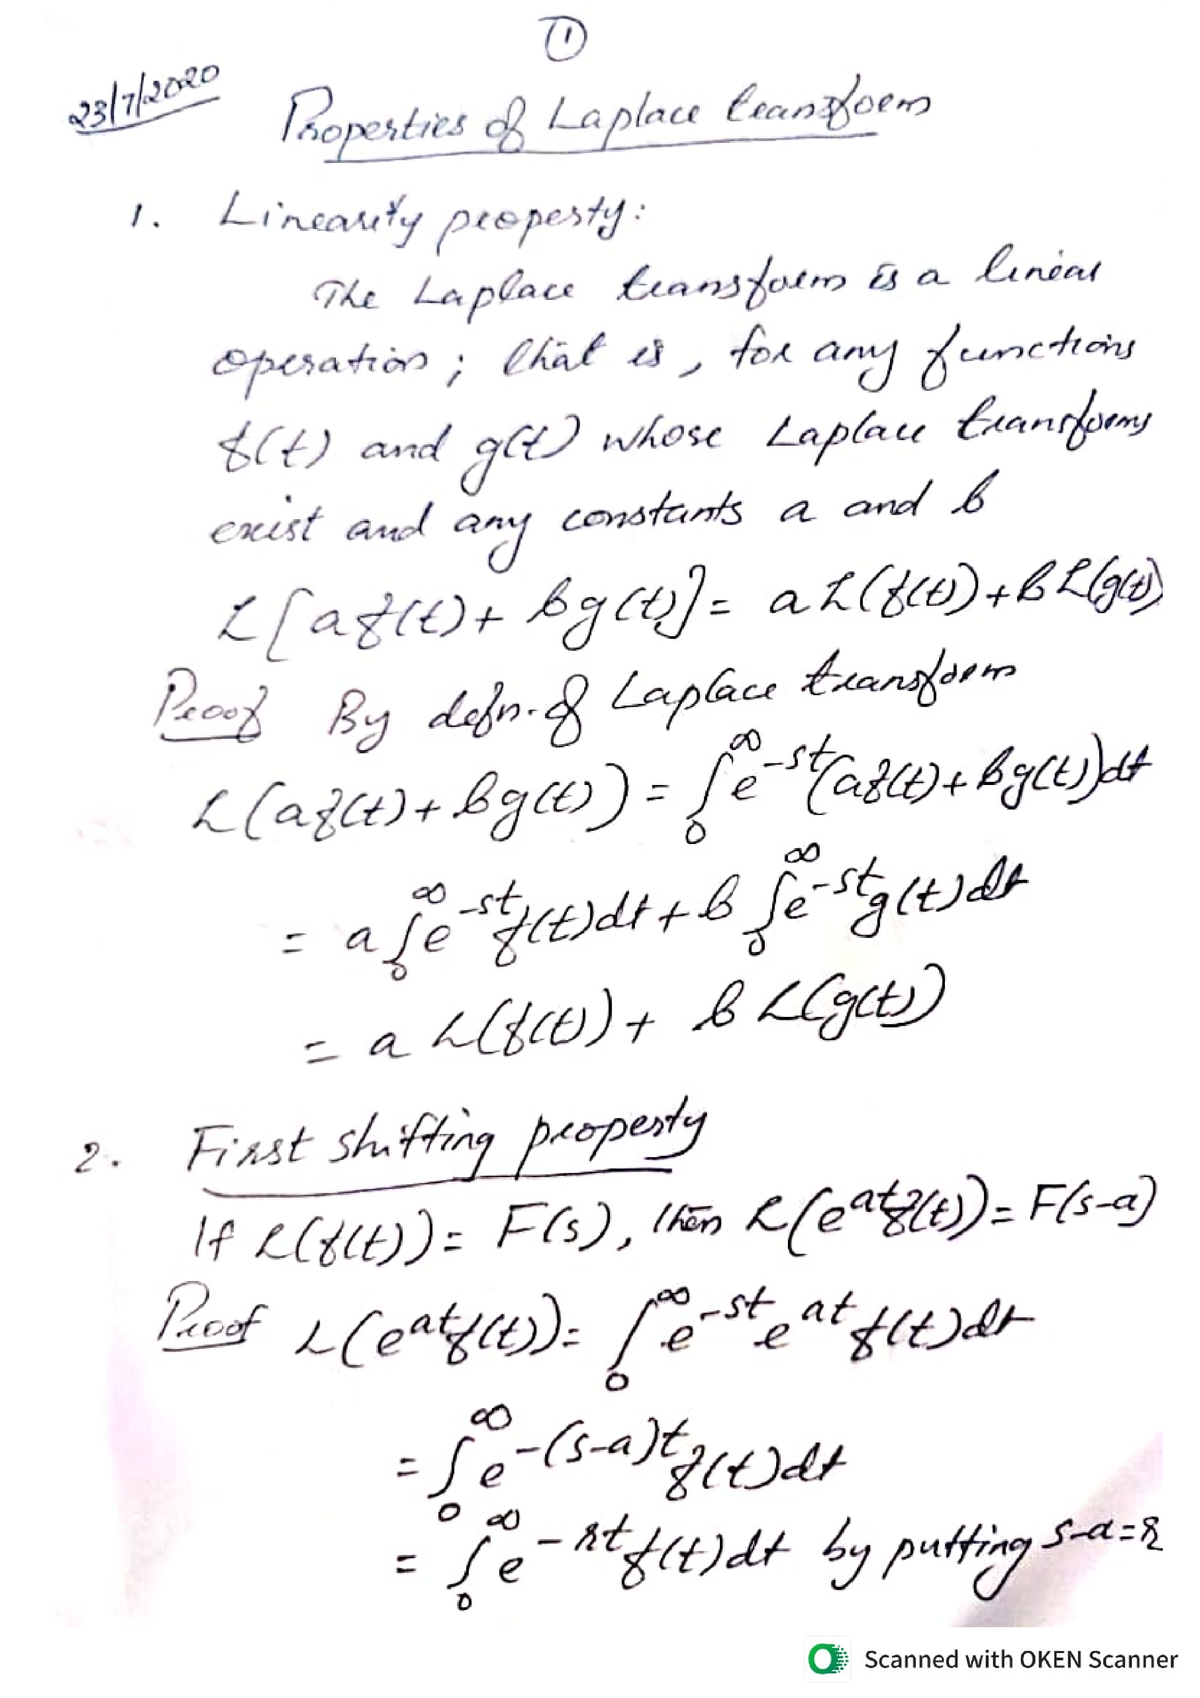 ①
23/7/2020
Properties of Laplace transform
1. Linearity property:
The Laplace transform is a linear
operation; that is, for any functions
f(t) and g(t) whose Laplace transforms
exist and any constants a and b
L[af(t) + bg(t)] = a L(f(t)) + b L(g(t))
Proof By defn. of Laplace transform
L(af(t) + bg(t)) = ∫₀^∞ e^{-st}(af(t) + bg(t))dt
= a ∫₀^∞ e^{-st} f(t)dt + b ∫₀^∞ e^{-st} g(t)dt
= a L(f(t)) + b L(g(t))
2. First shifting property
If L(f(t)) = F(s), then L(e^{at}f(t)) = F(s-a)
Proof L(e^{at}f(t)) = ∫₀^∞ e^{-st} e^{at} f(t)dt
= ∫₀^∞ e^{-(s-a)t} f(t)dt
= ∫₀^∞ e^{-rt} f(t)dt by putting s-a=r
Scanned with OKEN Scanner